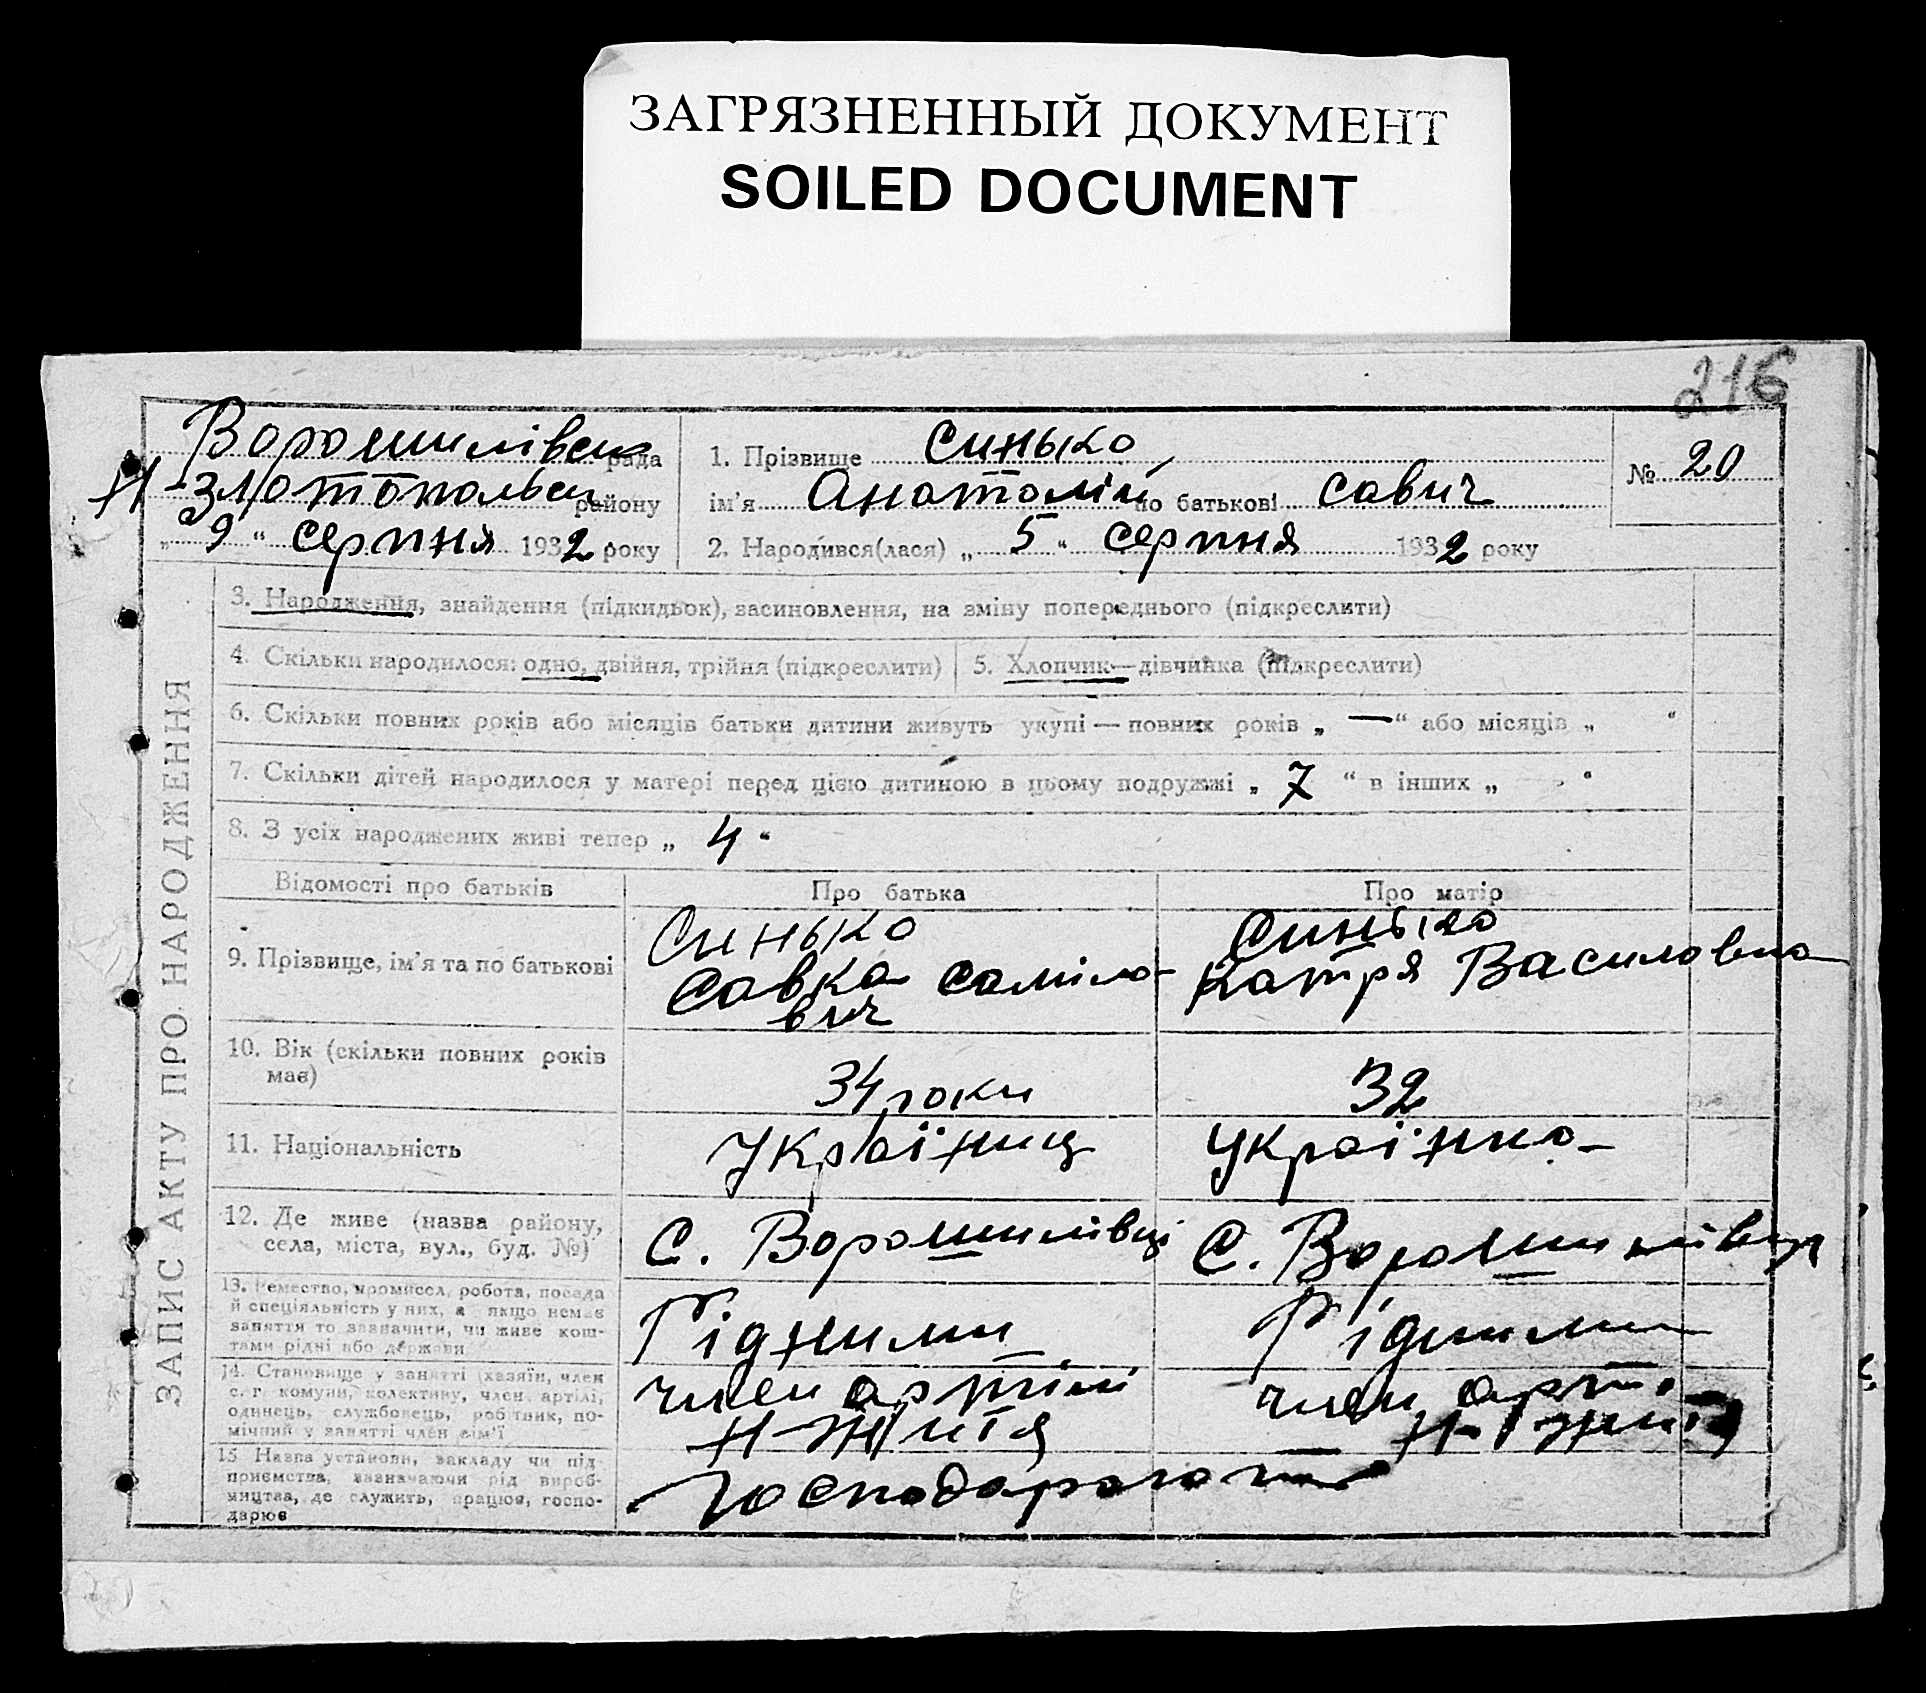 ЗАГРЯЗНЕННЫЙ ДОКУМЕНТ
SOILED DOCUMENT
216
Ворошилівськ рада
Н-Злотопольськ району
„9“ серпня 1932 року
1. Прізвище Синько
ім’я Анатолій по батькові Савич
2. Народився(лася) „5“ серпня 1932 року
№ 20
ЗАПИС АКТУ ПРО НАРОДЖЕННЯ
3. Народження, знайдення (підкидьок), засиновлення, на зміну попереднього (підкреслити)
4. Скільки народилося: одно, двійня, трійня (підкреслити)
5. Хлопчик—дівчинка (підкреслити)
6. Скільки повних років або місяців батьки дитини живуть укупі — повних років „—“ або місяців „ “
7. Скільки дітей народилося у матері перед цією дитиною в цьому подружжі „7“ в інших „ “
8. З усіх народжених живі тепер „4“
Відомості про батьків
Про батька
Про матір
9. Прізвище, ім’я та по батькові
Синько
Савка Саміло-
вич
Синько
Катря Василовна
10. Вік (скільки повних років
має)
34 роки
32
11. Національність
Україниц
Українка
12. Де живе (назва району,
села, міста, вул., буд. №)
С. Ворошилівці
С. Ворошилівці
13. Ремество, промисел, робота, посада
й спеціяльність у них, а якщо немає
заняття то зазначити, чи живе кош-
тами рідні або держави
Рідними
Рідними
14. Становище у занятті (хазяїн, член
с. г. комуни, колективу, член артілі,
одинець, службовець, робітник, по-
мічний у занятті член сім’ї
член артілі
Н-Життя
член арт.
15 Назва установи, закладу чи під-
приємства, зазначаючи рід вироб-
ництва, де служить, працює, госпо-
дарює